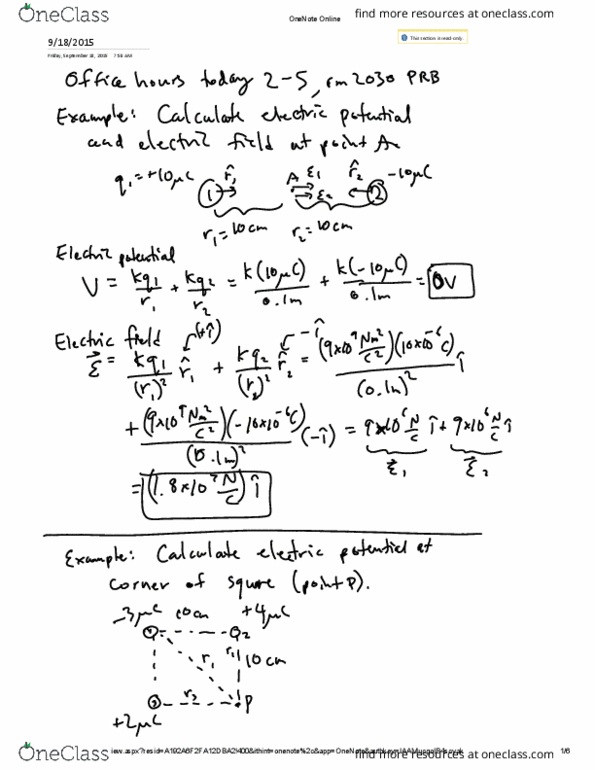 OneClass
OneNote Online
find more resources at oneclass.com
This section is read-only.
9/18/2015
Friday, September 18, 2015
Office hours today 2-5, rm 2030 PRB
Example: Calculate electric potential
and electric field at point A
q₁=+10μC 1 r̂₁ A ε₁ ε₂ r̂₂ 2 -10μC
r₁=10cm r₂=10cm
Electric potential
V = kq₁/r₁ + kq₂/r₂ = k(10μC)/0.1m + k(-10μC)/0.1m = 0V
Electric field (+î) -î
ε⃗ = kq₁/(r₁)² r̂₁ + kq₂/(r₂)² r̂₂ = (9×10⁹ Nm²/C²)(10×10⁻⁶C)/(0.1m)² î
+ (9×10⁹ Nm²/C²)(-10×10⁻⁶C)/(0.1m)² (-î) = 9×10⁶ N/C î + 9×10⁶ N/C î
ε⃗₁ ε⃗₂
= (1.8×10⁷ N/C) î
Example: Calculate electric potential at
corner of square (point P).
-3μC 10cm +4μC
2
r₁ 10cm
r₂ P
+2μC
OneClass
find more resources at oneclass.com
1/6